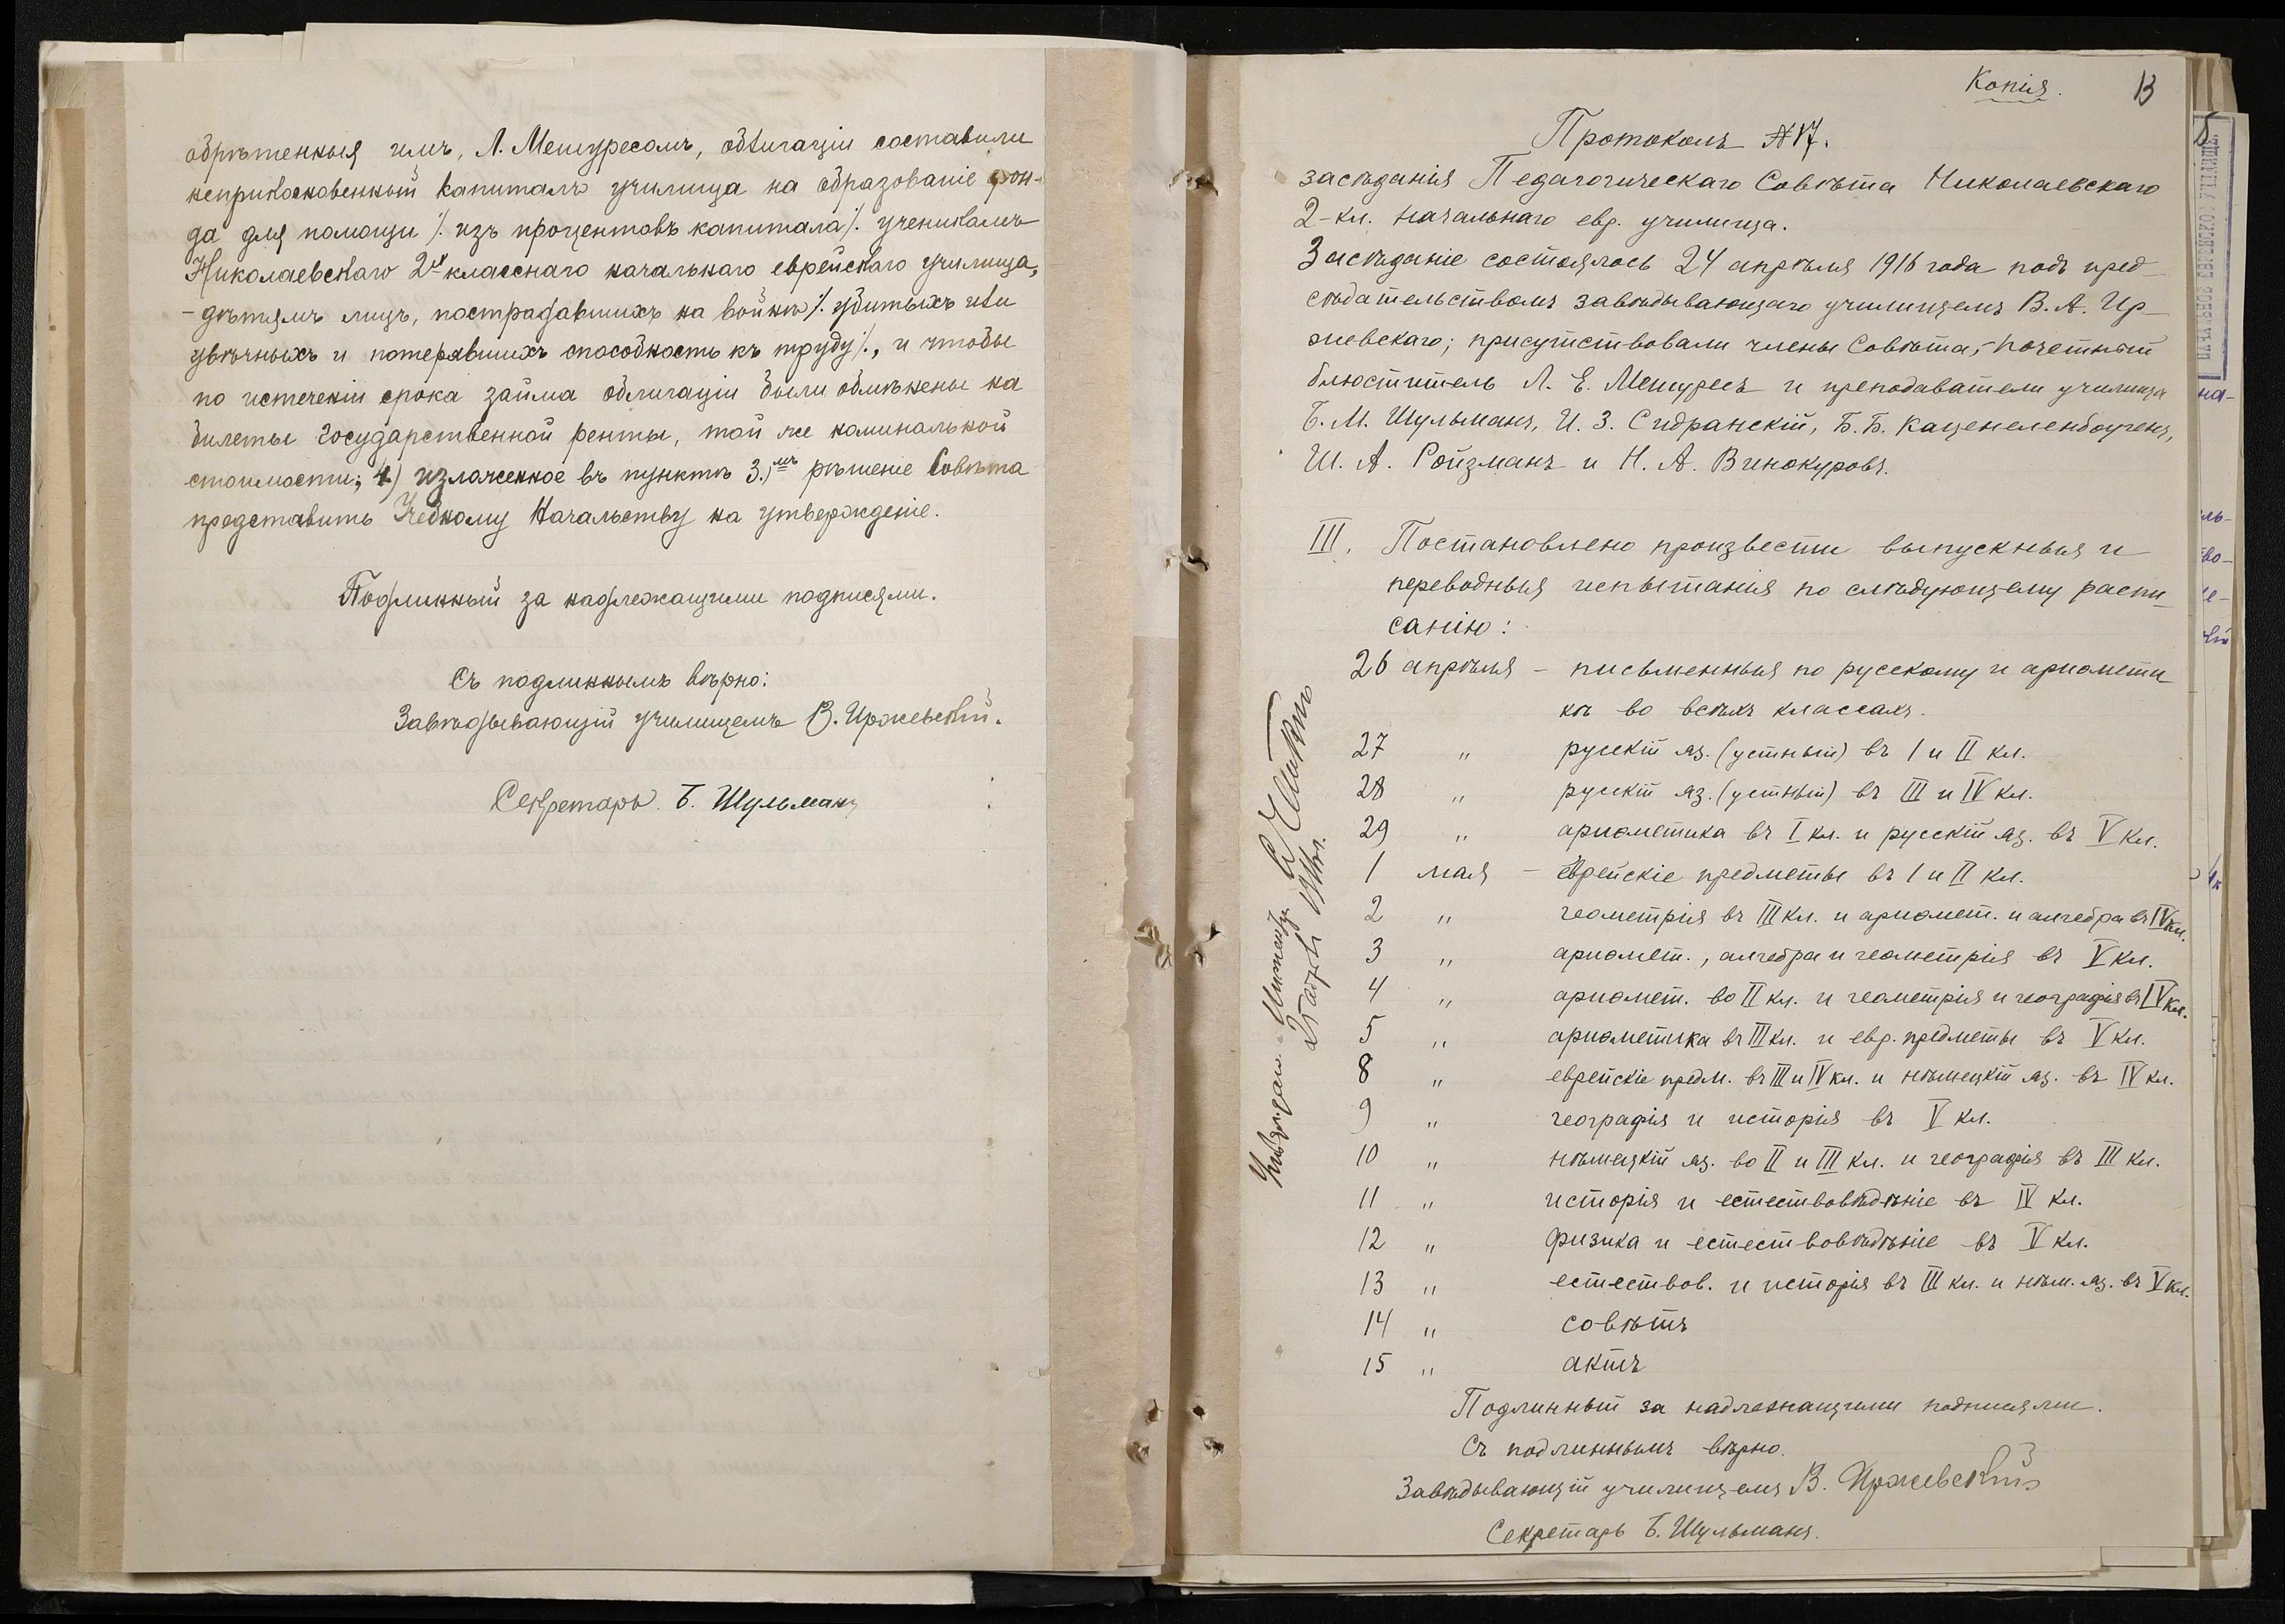 обрѣтенныя имъ, Л. Мешуресомъ, облигаціи составили
неприкосновенный капиталъ училища на образованіе фон-
да для помощи /. изъ процентовъ капитала /. ученикамъ
Николаевскаго 2хъ класснаго начальнаго еврейскаго училища,
- дѣтямъ лицъ, пострадавшихъ на войнѣ /. убитыхъ или
увѣчныхъ и потерявшихъ способность къ труду /., и чтобы
по истеченіи срока займа облигаціи были обмѣнены на
билеты Государственной ренты, той же номинальной
стоимости; 4.) изложенное въ пунктѣ 3.)мъ рѣшеніе Совѣта
представить Учебному Начальству на утвержденіе.
Подлинный за надлежащими подписями.
Съ подлиннымъ вѣрно:
Завѣдывающій училищемъ В. Иржевскій.
Секретарь Б. Шульманъ
Копія. 13
Протоколъ № 17.
засѣданія Педагогическаго Совѣта Николаевскаго
2-кл. начальнаго евр. училища.
Засѣданіе состоялось 24 апрѣля 1916 года подъ пред-
сѣдательствомъ завѣдывающаго училищемъ В. А. Ир-
жевскаго; присутствовали члены Совѣта, - почетный
блюститель Л. Е. Мешуресъ и преподаватели училища
Б. М. Шульманъ, И. З. Сидранскій, Б. Б. Каценеленбогенъ,
Ш. А. Ройзманъ и Н. А. Винокуровъ.
III. Постановлено произвести выпускныя и
переводныя испытанія по слѣдующему распи-
санію:
26 апрѣля - письменныя по русскому и ариѳмети-
кѣ во всѣхъ классахъ.
27 " русскій яз. (устный) въ I и II кл.
28 " русскій яз. (устный) въ III и IV кл.
29 " ариѳметика въ I кл. и русскій яз. въ V кл.
1 мая - еврейскіе предметы въ I и II кл.
2 " геометрія въ III кл. и ариѳмет. и алгебра въ IV кл.
3 " ариѳмет., алгебра и геометрія въ V кл.
4 " ариѳмет. во II кл. и геометрія и географія въ IV кл.
5 " ариѳметика въ III кл. и евр. предметы въ V кл.
8 " еврейскіе предм. въ III и IV кл. и нѣмецкій яз. въ IV кл.
9 " географія и исторія въ V кл.
10 " нѣмецкій яз. во II и III кл. и географія въ III кл.
11 " исторія и естествовѣдѣніе въ IV кл.
12 " физика и естествовѣдѣніе въ V кл.
13 " естествов. и исторія въ III кл. и нѣм. яз. въ V кл.
14 " совѣтъ
15 " актъ
Подлинный за надлежащими подписями.
Съ подлиннымъ вѣрно.
Завѣдывающій училищемъ В. Иржевскій
Секретарь Б. Шульманъ.